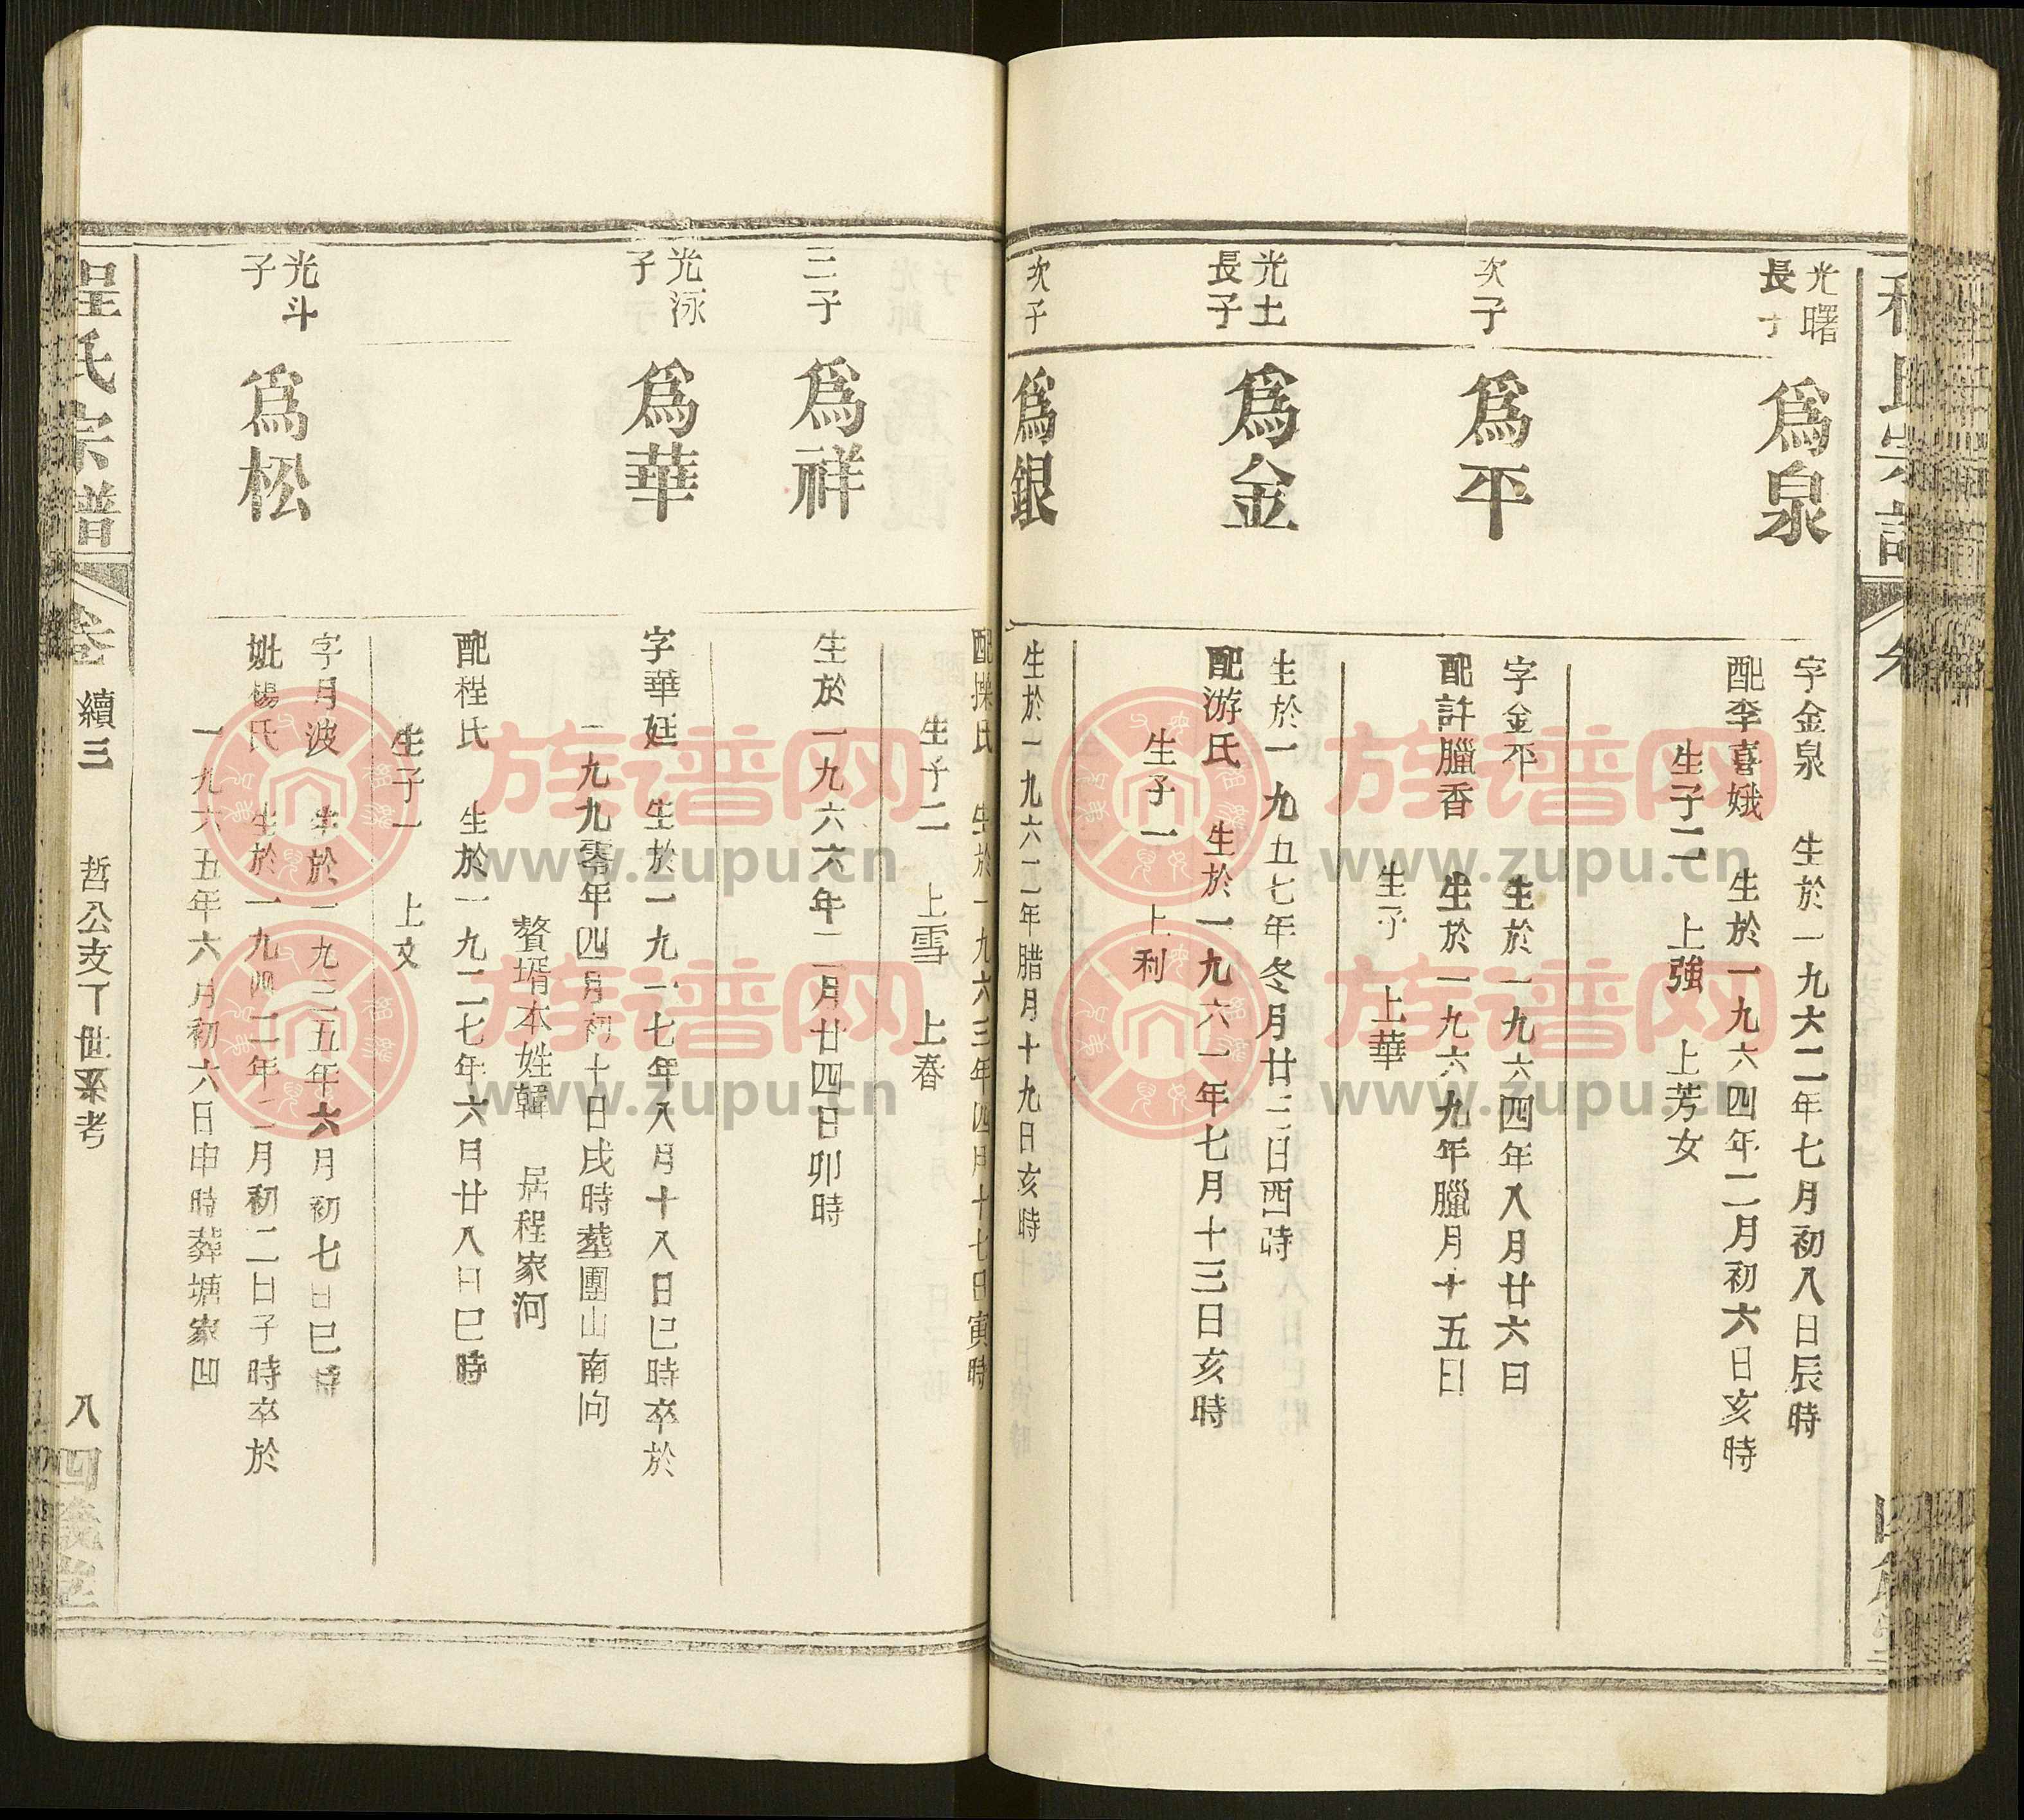 光曙
長子
爲泉
字金泉 生於一九六二年七月初八日辰時
配李喜娥 生於一九六四年二月初六日亥時
生子二 上強 上芳女
次子
爲平
字金平 生於一九六四年八月廿六日
配許臘香 生於一九六九年臘月十五日
生子 上華
光土
長子
爲金
生於一九五七年冬月廿二日酉時
配游氏 生於一九六一年七月十三日亥時
生子一 上利
次子
爲銀
生於一九六二年腊月十九日亥時
配操氏 生於一九六三年四月十七日寅時
生子二 上雪 上春
三子
爲祥
生於一九六六年二月廿四日卯時
光泳
子
爲華
字華廷 生於一九一七年八月十八日巳時卒於
一九九零年四月初十日戌時塟團山南向
贅壻本姓韓 居程家河
配程氏 生於一九二七年六月廿八日巳時
生子一 上文
光斗
子
爲松
字月波 生於一九三五年六月初七日巳時
妣楊氏 生於一九四二年二月初二日子時卒於
一九六五年六月初六日申時葬塘家凹
程氏宗譜 卷 續三 哲公支丁世系考 八 四義堂
族谱网
www.zupu.cn
族谱网
www.zupu.cn
族谱网
www.zupu.cn
族谱网
www.zupu.cn